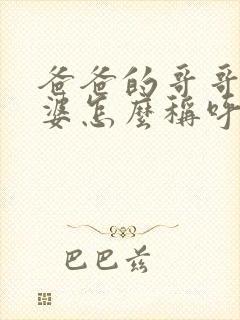 爸爸的哥哥
婆怎麼稱呼
巴巴兹